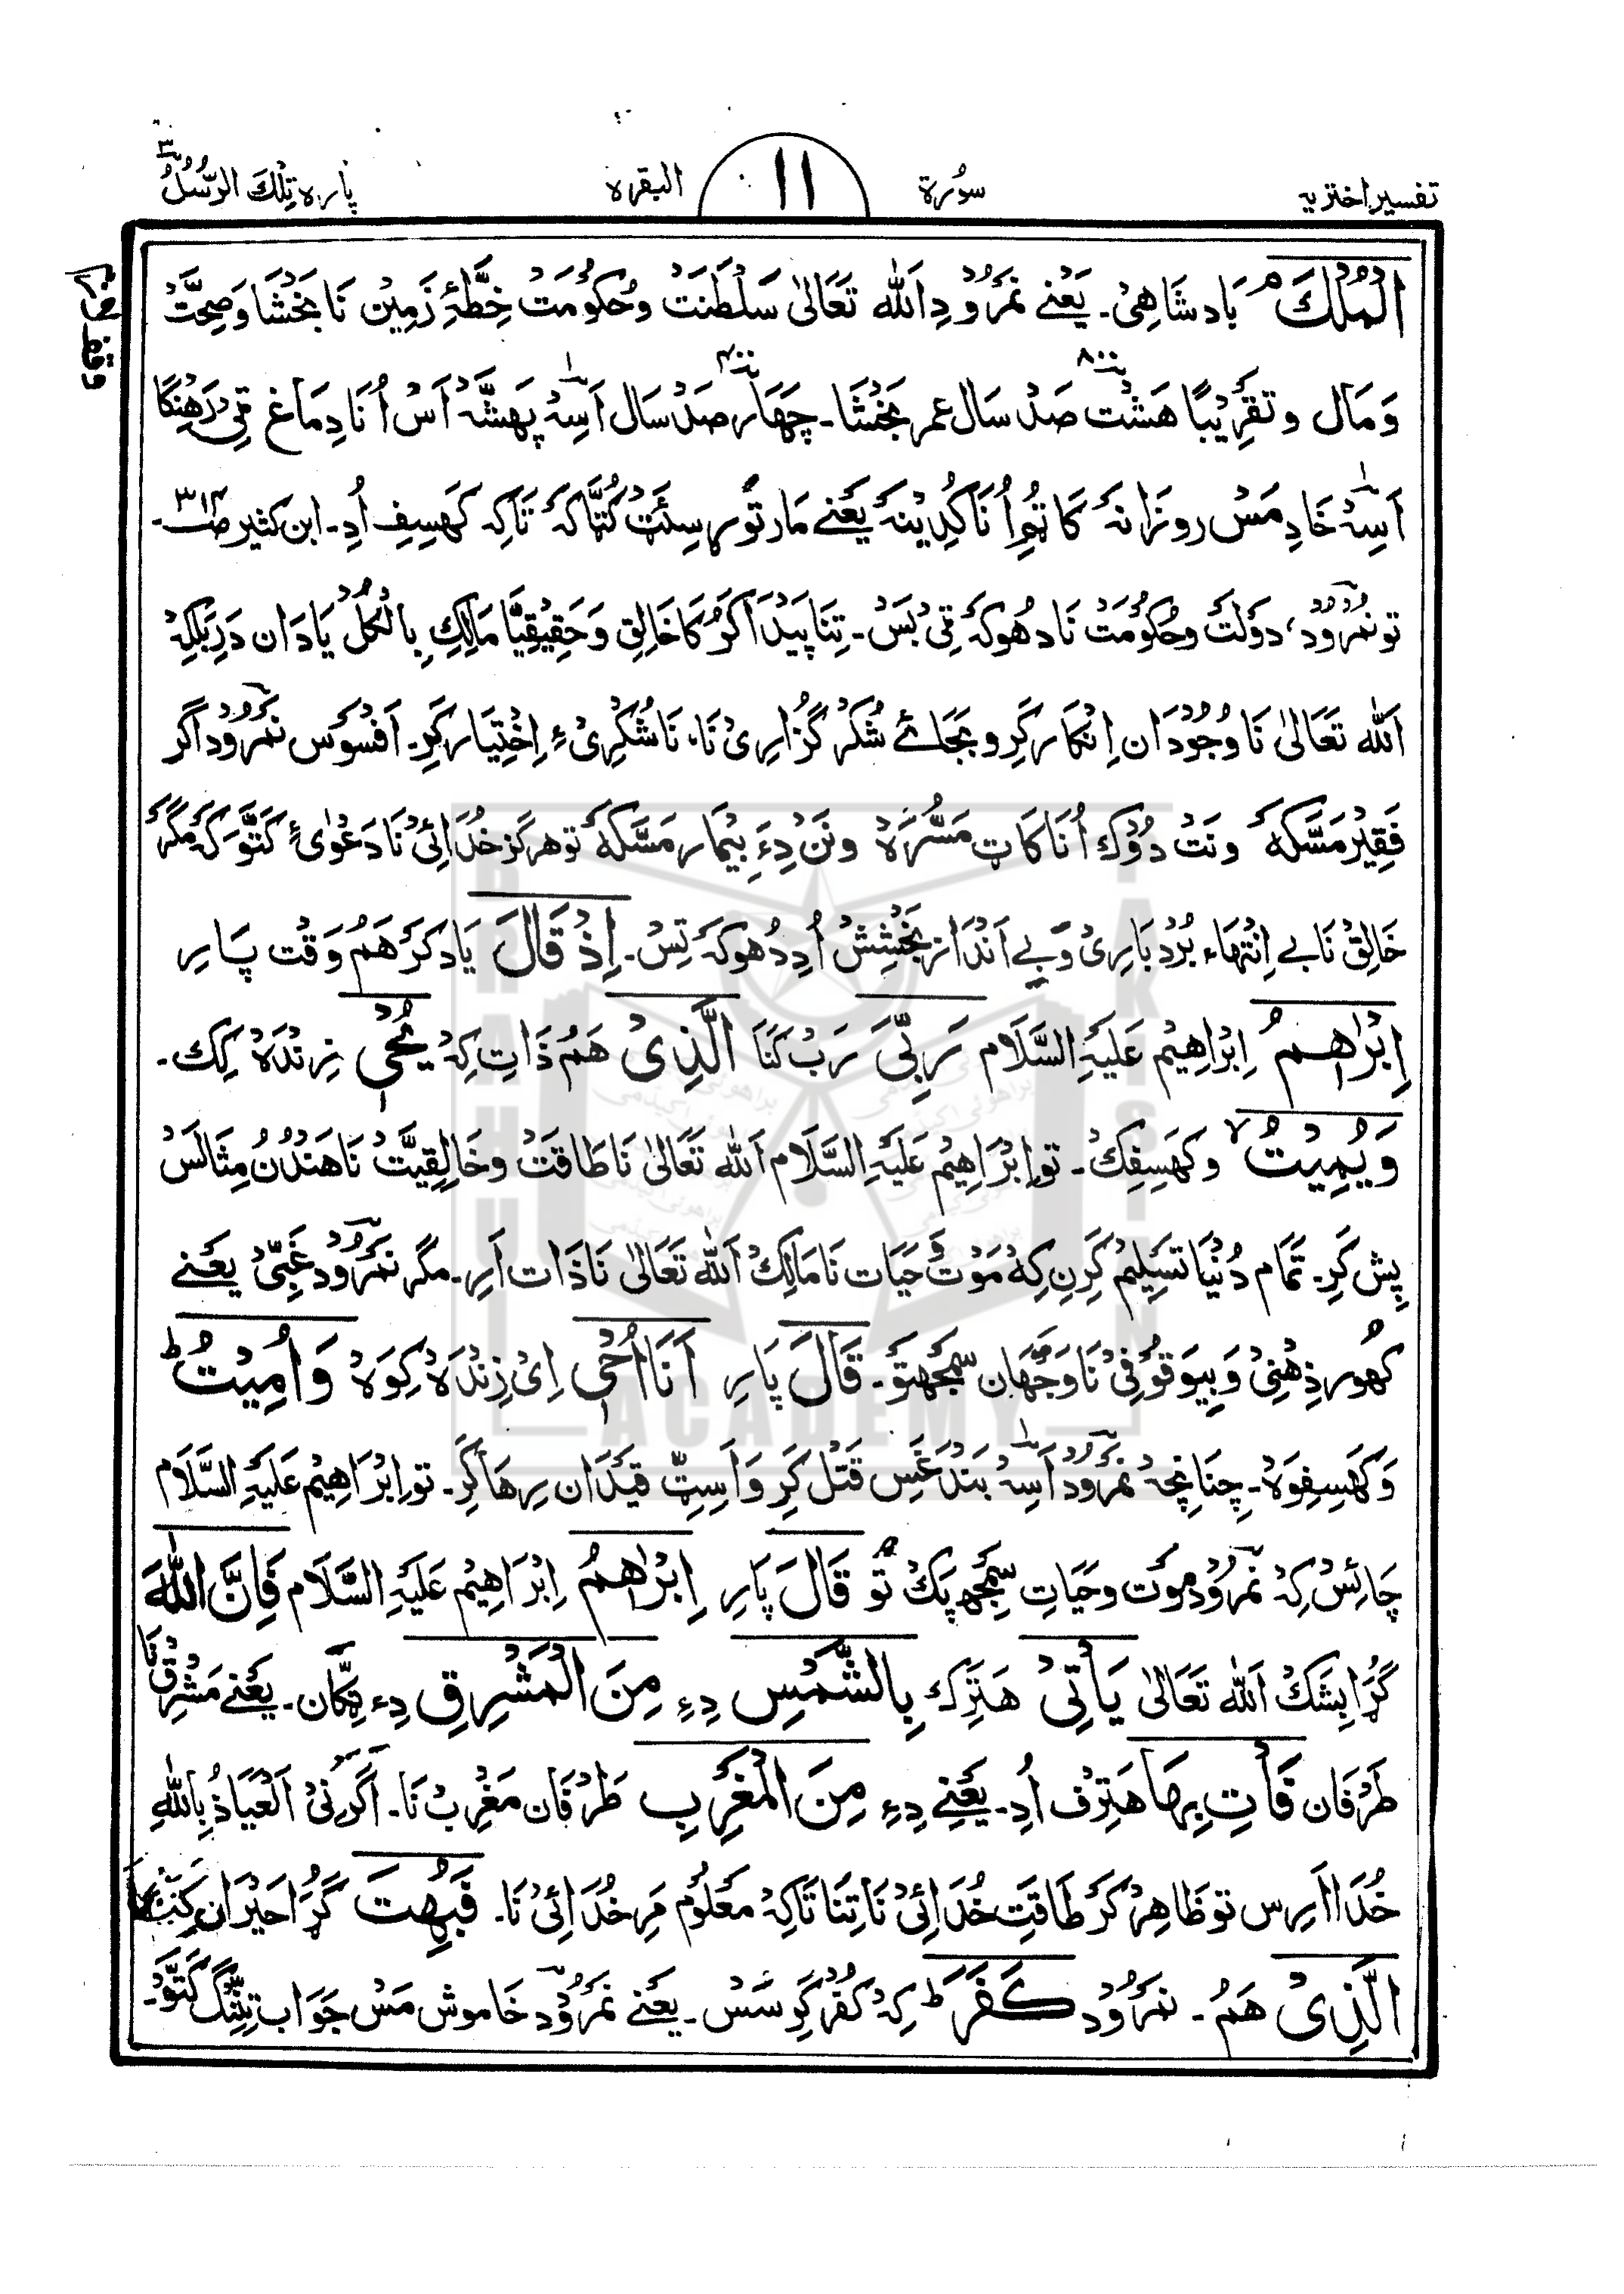 تفسیر اختریہ سُورۃ ۱۱ البقرہ پارہ تِلْكَ الرُّسُلُ ۳
اَلْمُلْكَ م بَادشَاھِیْ۔ یَعْنے نَمْرُوْد دِ اَللّٰه تَعَالیٰ سَلْطَنَتْ وحُکوُمَتْ خِطَّۂِ زَمِیْن نَا بَخْشَا وَصِحَّتْ
وَمَال وتقرِیْبًا ھَشْت صَدْ سَال عمر بَخْشَا۔ چَھَار صَدْ سَال اَسِہْ پَھشَّہْ اَسْ اُنَا دِمَاغ قی دَھِنْگا
۸۰۰ ۴۰۰
اَسِہْ خَادِمَسْ روزَانَہ کَا تُمِ اُنَا کُدِیْنَہ یَعْنے مَارتَوْس سِئَتْ کُتَّاکَہ تَاکِہ کَھسِیفِ اُدِ۔ ابن کثیر ص۳۱۳۔
تو نمْرُوْد، دَوْلَتْ وحُکوُمَتْ نَا دھُوکَہ قِی بَسْ۔ تِنَا پَیْدَا کَرُکَا خَالِقِ وَحَقِیْقِیَّا مَالِکِ بِالْکُلْ یَادَان دَرِبَلِلِہْ
اَللّٰه تَعَالیٰ نَا وُجُوْدَان اِنْکَار کَرِ و بَجَائے شُکَرْ گُزارِیْ نَا، نَاشُکْرِیْ ءِ اِخْتِیَار کَرِ۔ اَفْسُوَس نَمْرُوْد اَگَر
فَقِیْر مَسَّکہ وَنَتْ دُوْک اُنَا کَاتِ مَسُّرَہْ وَنَن دِءَ بِیْمَار مَسَّکہ تو ھرگز خُدَائِیْ نَا دَعْوٰیْ ءِ کَتَّوَکہ مَگَر
خَالِقْ نَا بے اِنْتِھَاء بُرْدبَارِیْ وَبے اَنْدَاز بَخْشِشْ اُدِ دُھوکَہ تِسْ۔ اِذْ قَالَ یَاد کَرْ ھَمْ وَقْت پَارِ
اِبْرٰاھٖمُ اِبْرَاھِیْم عَلَیْہِ السَّلَام رَبِّیَ رَبْ کَنَا الَّذِیْ ھَمْ ذَاتِ کِہ یُحْیٖ زِنْدَہْ کِك۔
وَیُمِیْتُ لا وکَھَسِفِكْ۔ تو اِبْرَاھِیْم عَلَیْہِ السَّلَام اَللّٰه تَعَالیٰ نَا طَاقَتْ وخَالِقِیَّتْ نَا ھَنْدُنُ مِثَالَسْ
پِش کَرِ۔ تَمَام دُنْیَا تَسْلِیْم کَرِنِ کِہْ مَوْتْ وَ حَیَات نَا مَالِكْ اَللّٰه تَعَالیٰ نَا ذَات اَرِ۔ مگر نَمْرُوْد غَبِّیْ یَعْنے
کھُور ذِھْنِیْ وَبِیوَقُوْفِیْ نَا وَجَّھَان سَمْجھتَو۔ قَالَ پَارِ اَنَا اُحْیٖ اِیْ زِنْدَہْ کِوَہْ وَاُمِیْتُ ط
وَکَھسِفِوَہْ۔ چنَانْچَہْ نَمْرُوْد اَسِہْ بَنْدَغَسِ قَتْل کَرِ وَاَسِتِّ قَیْدَان رِھَا کَرِ۔ تو اِبْرَاھِیْم عَلَیْہِ السَّلَام
چَائِسْ کِہ نَمْرُوْد موَت وحَیَاتِ سَمْجھ پَكْ تَو قَالَ پَارِ اِبْرٰاھٖمُ اِبْرَاھِیْم عَلَیْہِ السَّلَام فَاِنَّ اللّٰهَ
گُڑا بِشَكْ اَللّٰه تَعَالیٰ یَأْتِیْ ھَتِرَك بِالشَّمْسِ دِءِ مِنَ الْمَشْرِقِ دِء ٹِکَّان۔ یَعْنے مَشْرِقْ نَا
طَرْفَان فَأْتِ بِھَا ھَتِرَف اُدِ۔ یَعْنِے دِءِ مِنَ الْمَغْرِبِ طَرْفَان مَغْرِبْ نَا۔ اَگَر نِیْ اَلْعَیَاذُ بِاللّٰهِ
خُدَا اَرِس تو ظَاھِرْ کَرْ طَاقَتِ خُدَائِیْ نَا تِنَا تَاکِہْ مَعْلُوم مَرِ خُدَائِیْ نَا۔ فَبُھِتَ گُڑا حَیْرَان
الَّذِیْ ھَمْ۔ نمرُوْد کَفَرَ ط کِہْ کُفْر کَرِسَسْ۔ یَعْنے نَمْرُوْد خَاموش مَسْ جَوَاب تِنِنْگ کَتَوْ۔